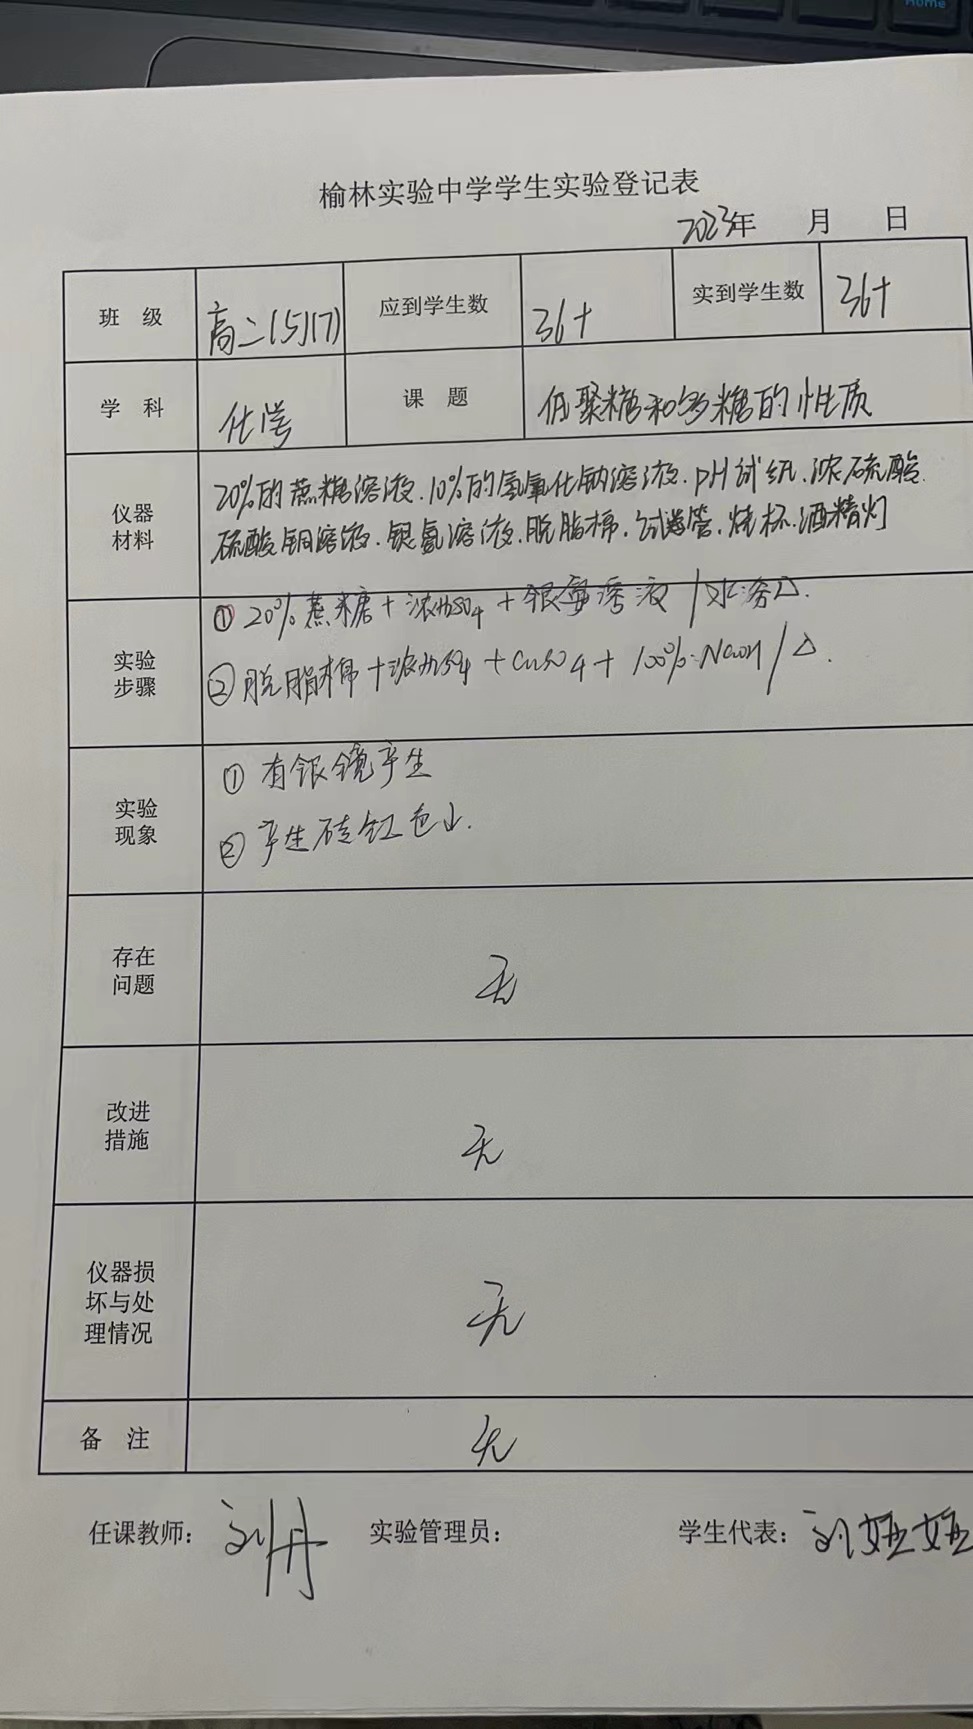 Home
榆林实验中学学生实验登记表
2023年 月 日
班 级 高二(5)(7) 应到学生数 36+ 实到学生数 36+
学 科 化学 课 题 低聚糖和多糖的性质
仪器材料 20%的蔗糖溶液.10%的氢氧化钠溶液.pH试纸.浓硫酸.
硫酸铜溶液.银氨溶液.脱脂棉.试管.烧杯.酒精灯
实验步骤 ①20%蔗糖+浓H₂SO₄+银氨溶液/水浴△.
②脱脂棉+浓H₂SO₄+CuSO₄+100%NaOH/△.
实验现象 ①有银镜产生
②产生砖红色↓.
存在问题 无
改进措施 无
仪器损坏与处理情况 无
备 注 无
任课教师：刘丹 实验管理员： 学生代表：刘娅娅